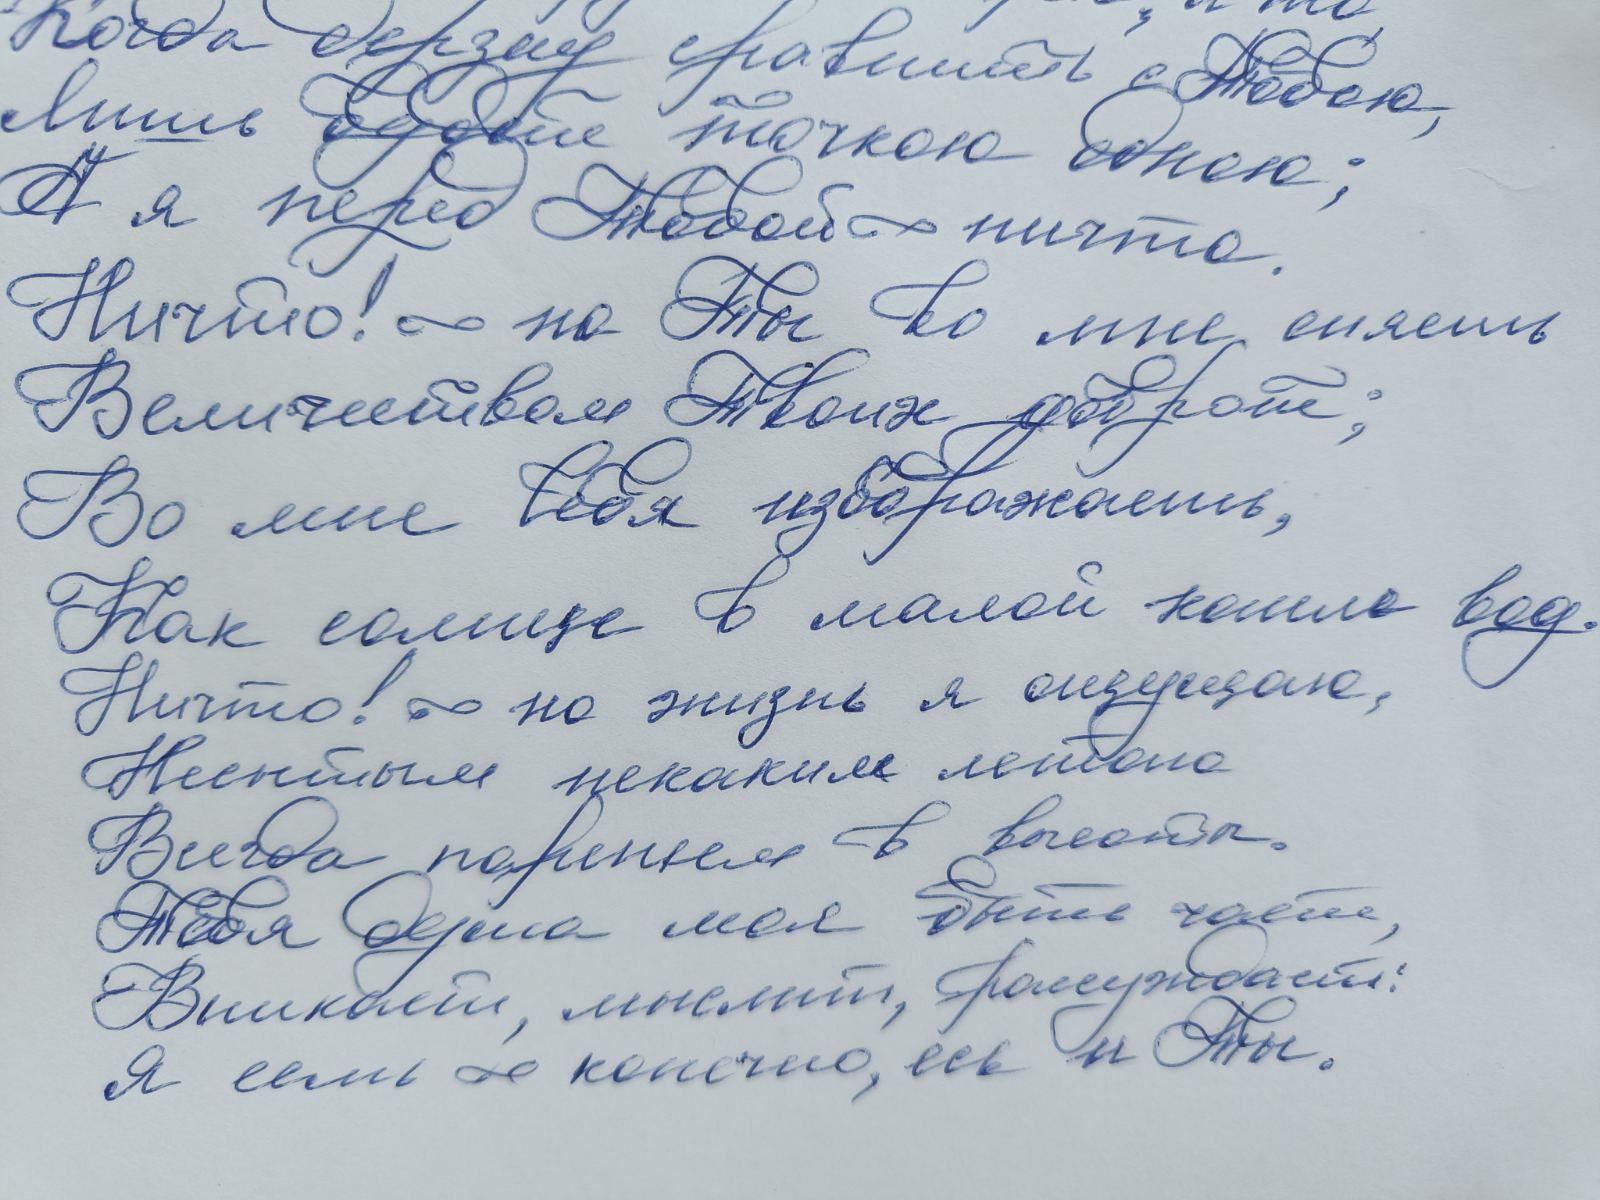 и то,
Когда дерзну сравнить с Тобою,
Лишь будет точкою одною;
А я перед Тобой ~ ничто.
Ничто! ~ но Ты во мне сияешь
Величеством Твоих доброт;
Во мне Себя изображаешь,
Как солнце в малой капле вод.
Ничто! ~ но жизнь я ощущаю,
Несытым некаким летаю
Всегда пареньем в высоты.
Тебя душа моя быть чает,
Вникает, мыслит, рассуждает:
Я есмь ~ конечно, есь и Ты.